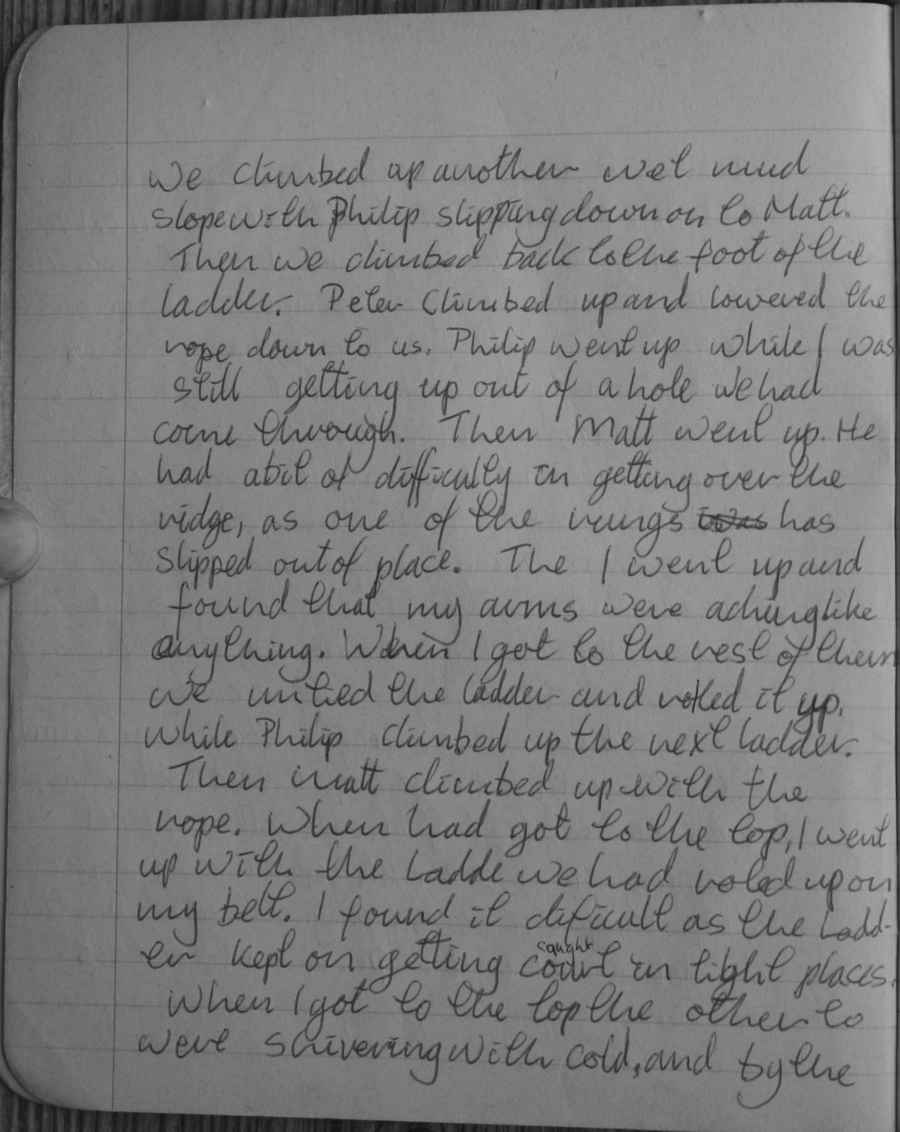 We climbed up another wet mud
slope with Philip slipping down on to Matt.
Then we climbed back to the foot of the
ladder. Peter climbed up and lowered the
rope down to us. Philip went up while I was
still getting up out of a hole we had
come through. Then Matt went up. He
had a bit of difficulty in getting over the
ridge, as one of the rungs was has
slipped out of place. The I went up and
found that my arms were aching like
anything. When I got to the rest of them
we untied the ladder and rolled it up,
while Philip climbed up the next ladder.
Then Matt climbed up with the
rope. When had got to the top, I went
up with the ladde we had roled up on
my belt. I found it dificult as the ladd-
er kept on getting caught in tight places.
When I got to the top the other to
were shivering with cold, and by the